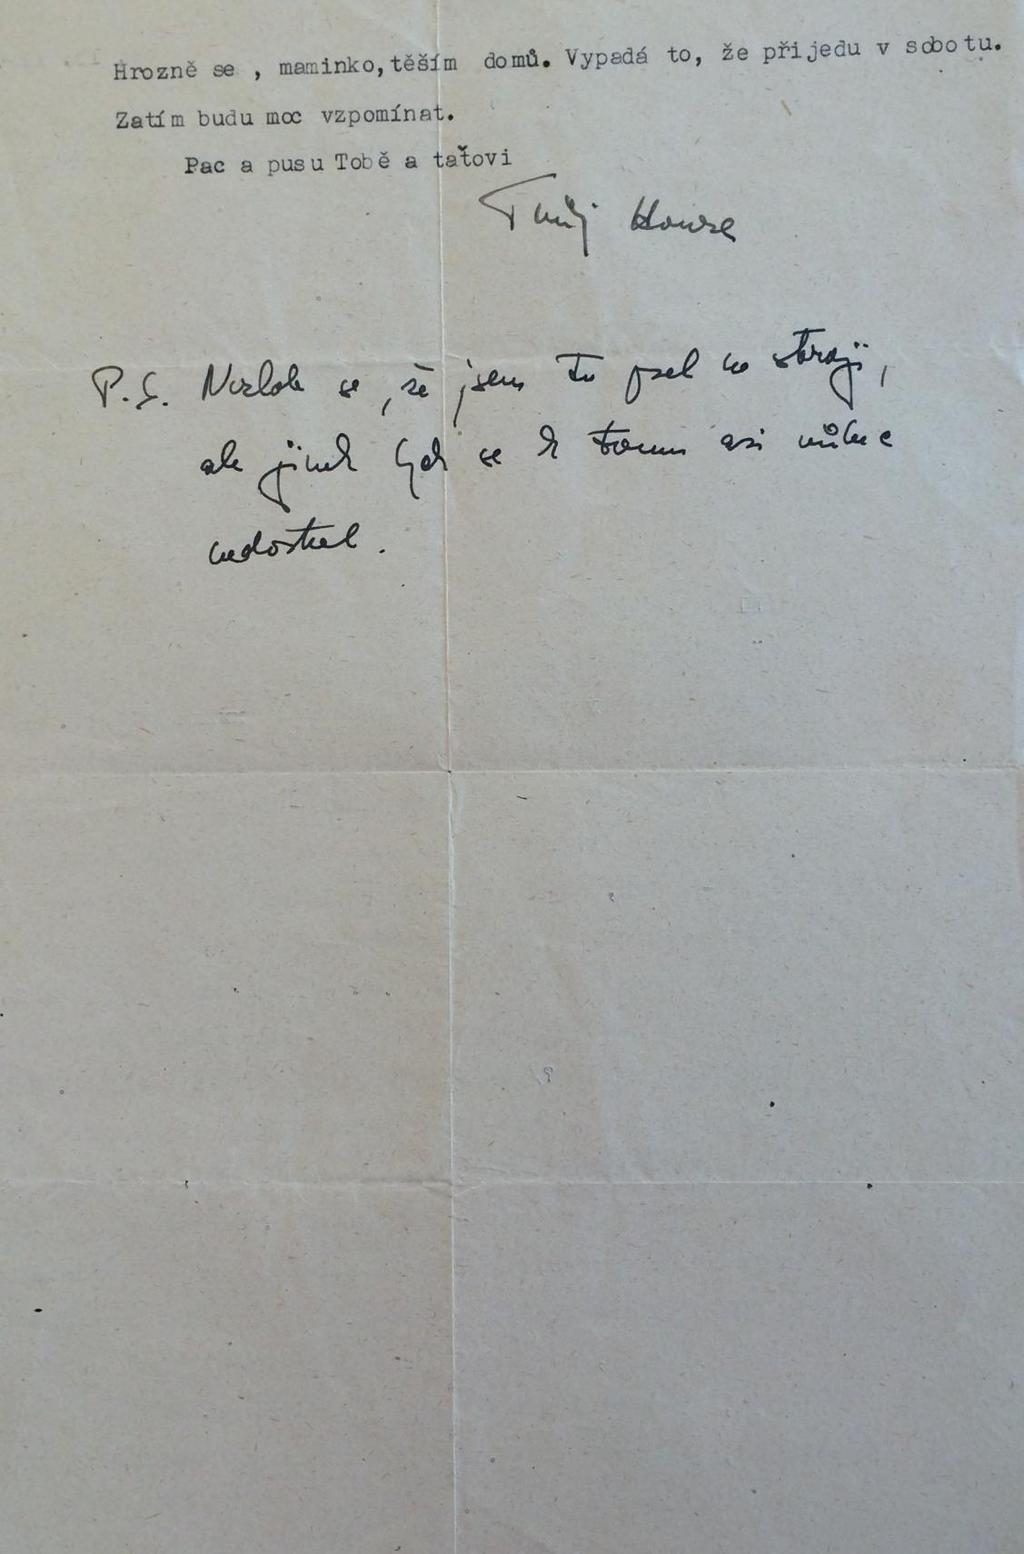 Hrozně se , maminko,těším domů. Vypadá to, že přijedu v sobotu.
Zatím budu moc vzpomínat.
Pac a pusu Tobě a taťovi
Tvůj
P.S. Nezlob se, že jsem to psal na stroji,
ale jinak bych se k tomu asi vůbec
nedostal.